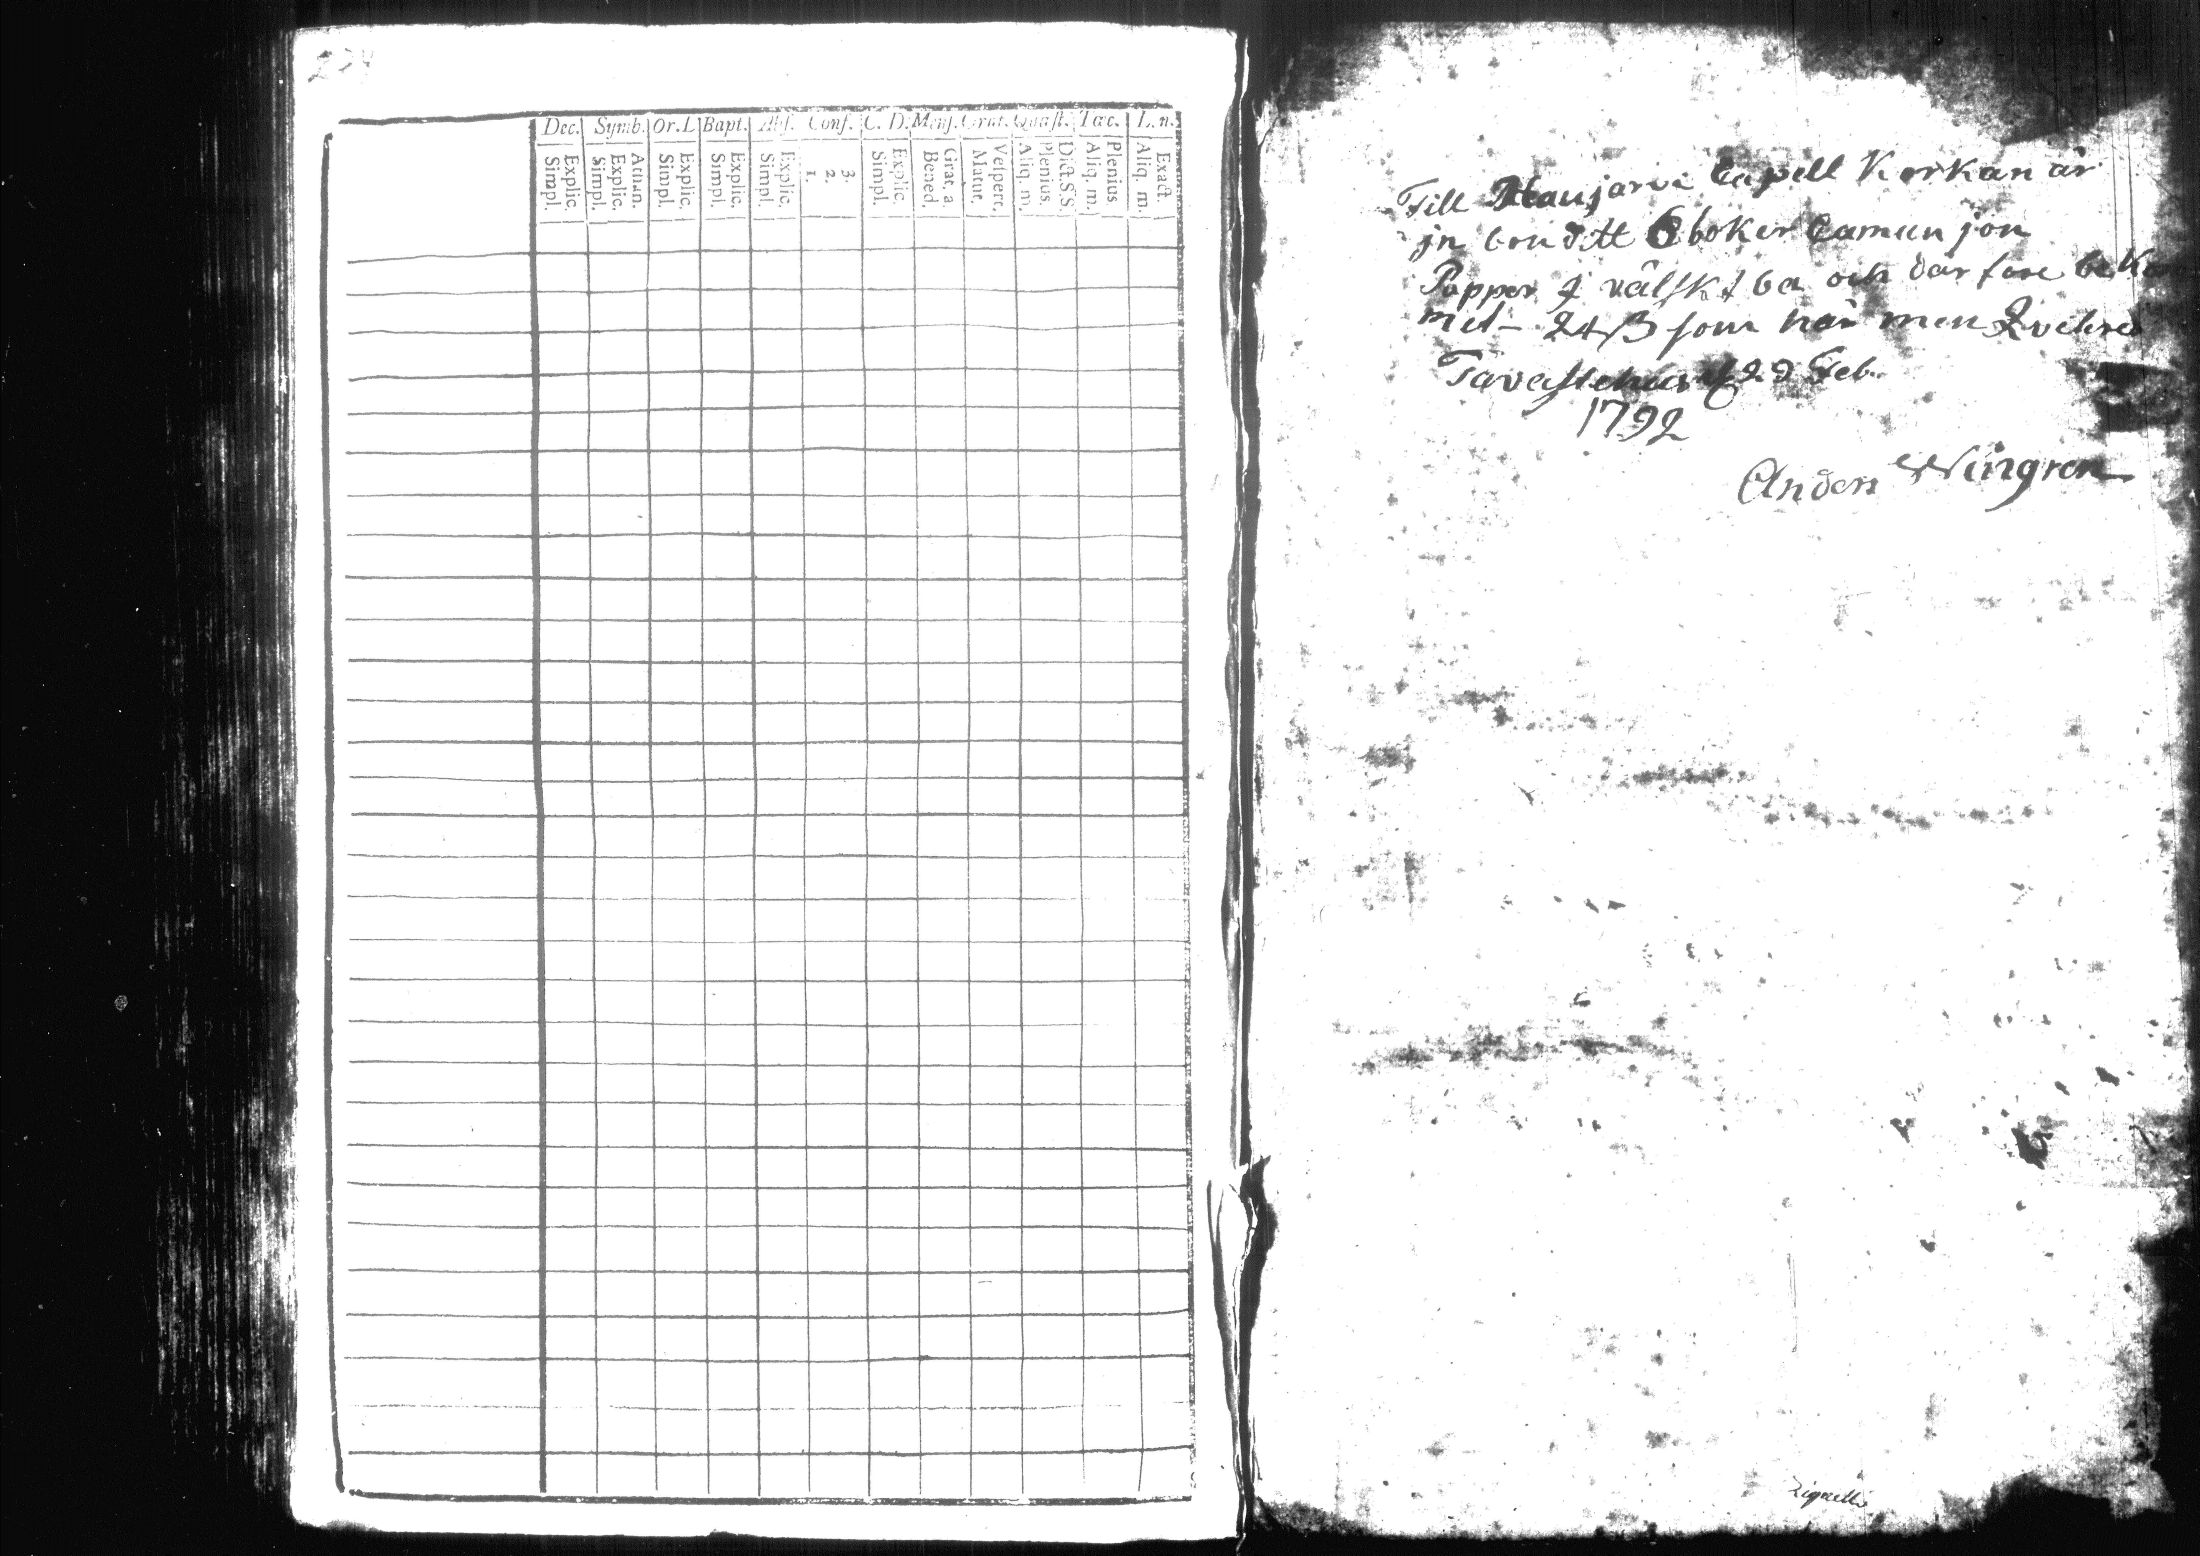 Dec. Symb. Or. L Bapt. Abs. Conf. C. D. Mens. Grat. Quæst. Tæc. L. n.
Explic. Simpl. Athan. Explic. Simpl. Explic. Simpl. Explic. Simpl. Explic. Simpl. 3. 2. 1. Explic. Simpl. Grat. a. Bened. Vespert. Matut. Dict. S. S. Plenius. Aliq. m. Plenius Aliq. m. Exact. Aliq. m.
Till Hausjarvi Capell Kerkan är
jn bondtt 6 boker Camun jon
Papper j välskt ba och där fore be kom
met 24 ß som här men
Tavastehus d 29 Feb.
1792
Anders Wingren